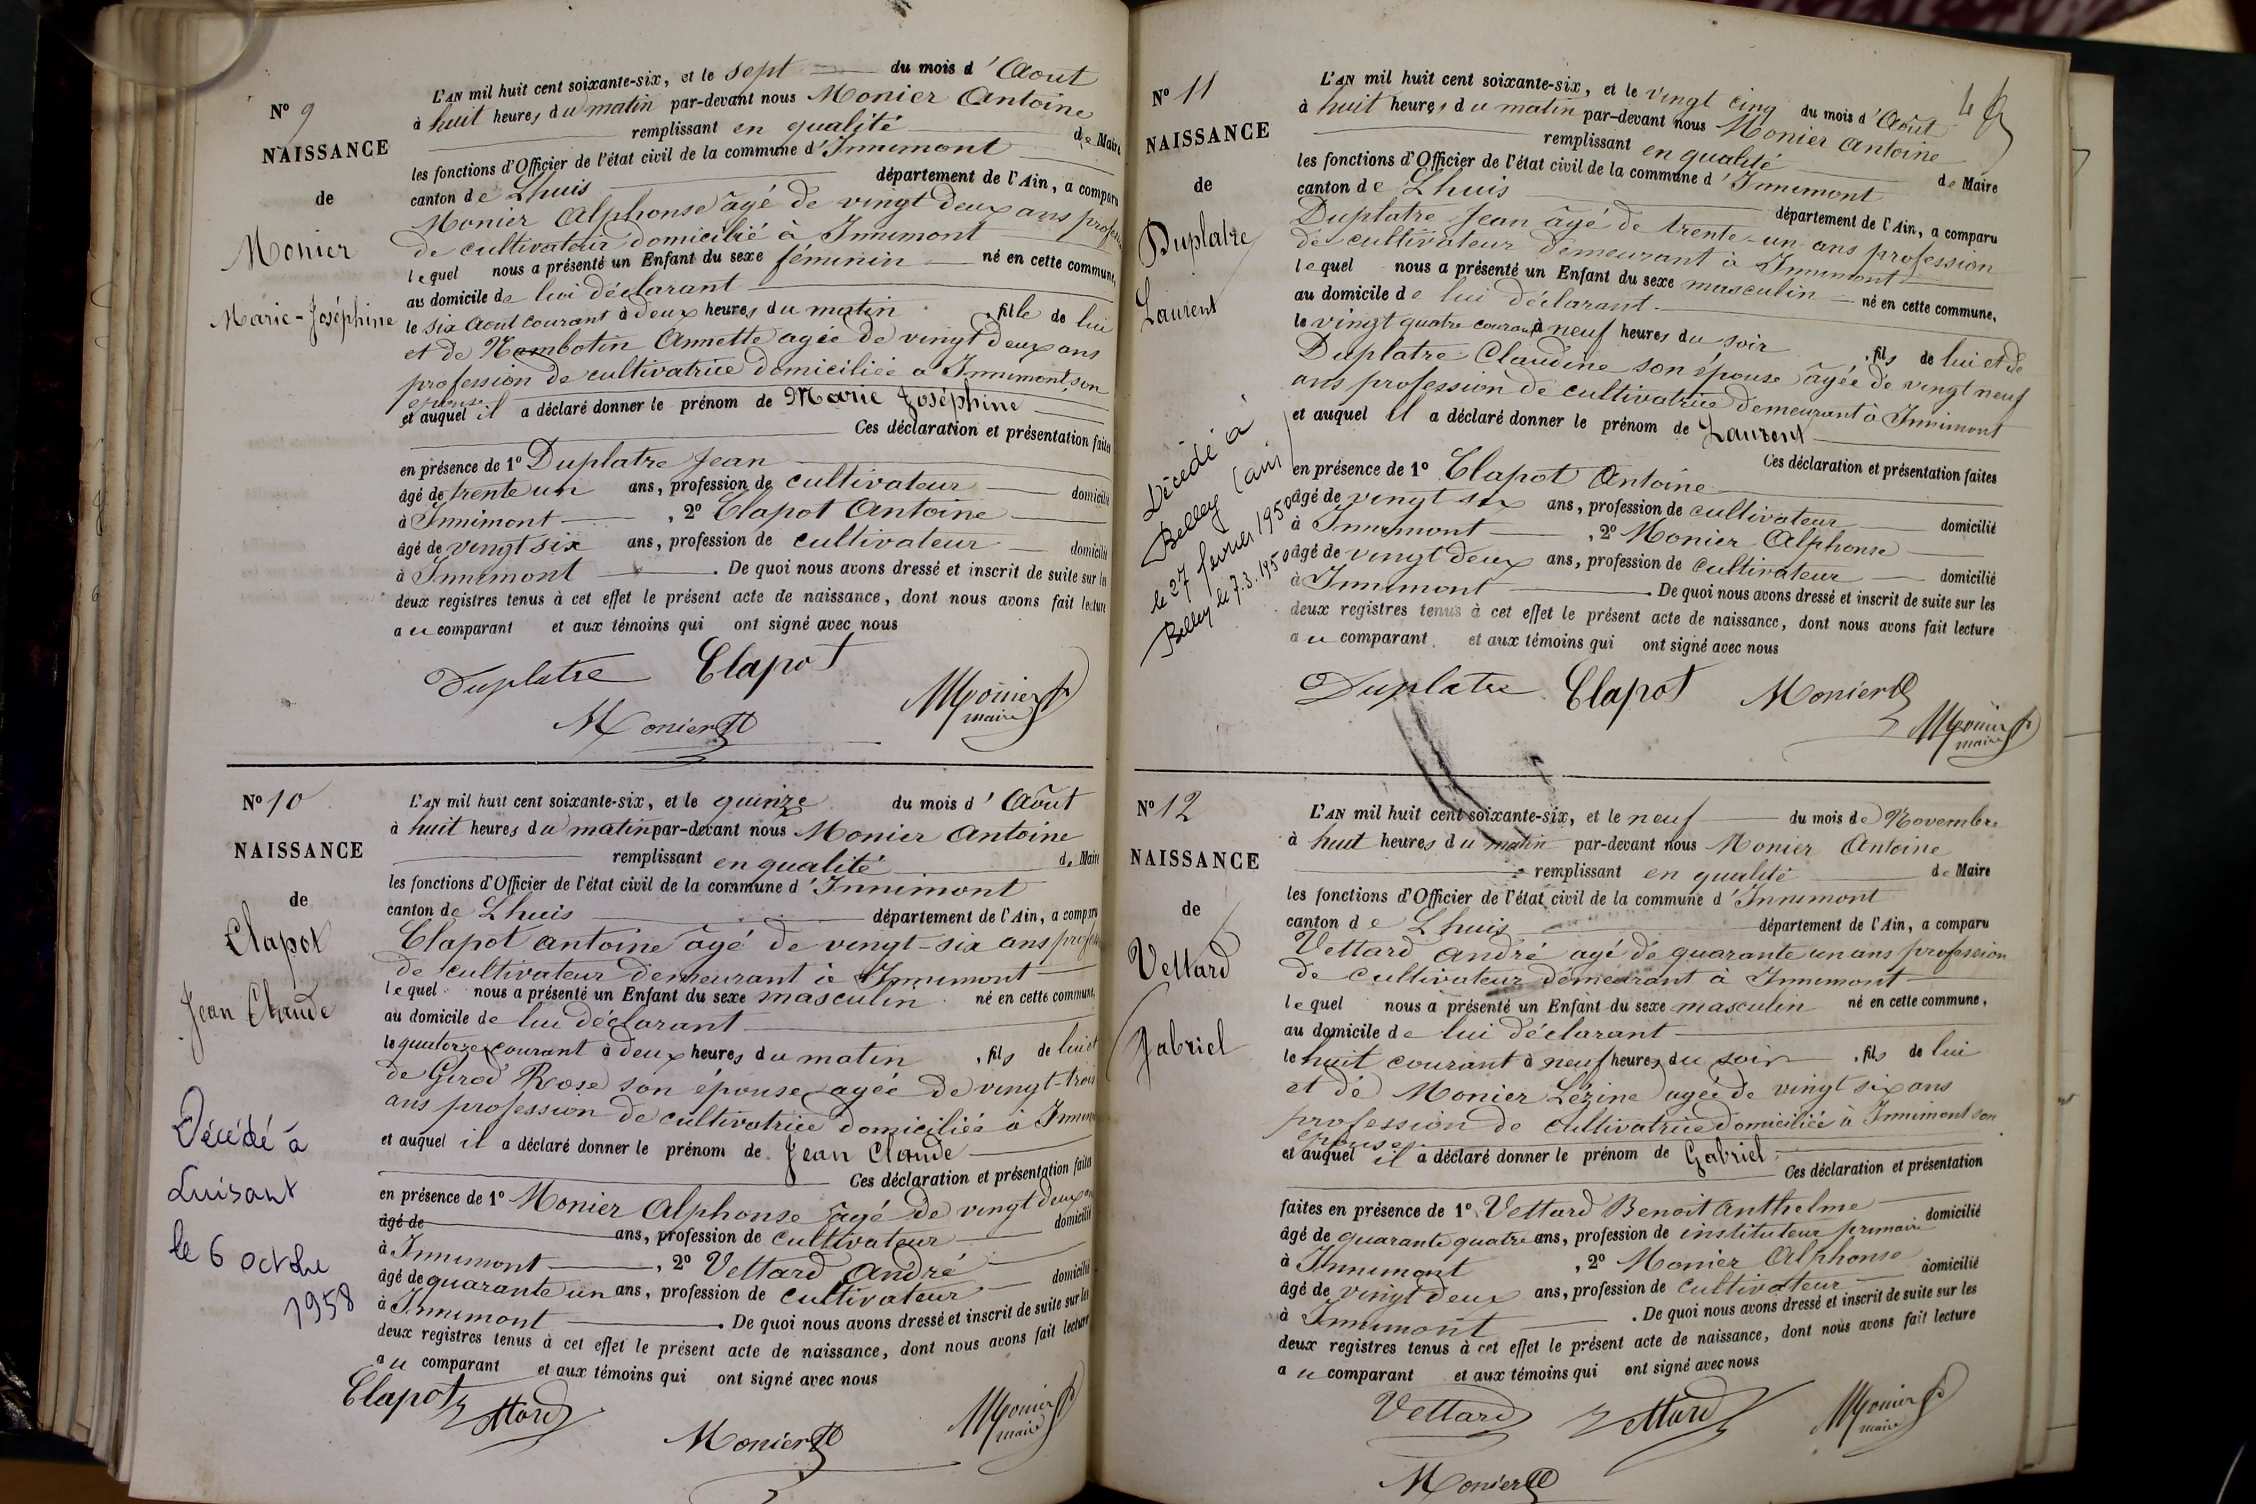 N° 9
NAISSANCE
de
Monier
Marie-Joséphine
L'AN mil huit cent soixante-six, et le sept du mois d'Aout
à huit heures du matin par-devant nous Monier Antoine
remplissant en qualité de Maire
les fonctions d'Officier de l'état civil de la commune d'Innimont
canton de Lhuis département de l'Ain, a comparu
Monier Alphonse âgé de vingt deux ans profession
de cultivateur domicilié à Innimont
lequel nous a présenté un Enfant du sexe féminin né en cette commune,
au domicile de lui déclarant
le six Aout courant à deux heures du matin , fille de lui
et de Nambotin Annette agée de vingt deux ans
profession de cultivatrice domiciliée à Innimont, son
épouse
et auquel il a déclaré donner le prénom de Marie Joséphine
Ces déclaration et présentation faites
en présence de 1° Duplatre Jean
âgé de trente un ans, profession de cultivateur domicilié
à Innimont , 2° Clapot Antoine
âgé de vingt six ans, profession de cultivateur domicilié
à Innimont . De quoi nous avons dressé et inscrit de suite sur les
deux registres tenus à cet effet le présent acte de naissance, dont nous avons fait lecture
au comparant et aux témoins qui ont signé avec nous
Duplatre Clapot
Monier
Monier
maire
N° 10
NAISSANCE
de
Clapot
Jean Claude
Décédé à
Luisant
le 6 octobre
1958
L'AN mil huit cent soixante-six, et le quinze du mois d'Août
à huit heures du matin par-devant nous Monier Antoine
remplissant en qualité de Maire
les fonctions d'Officier de l'état civil de la commune d'Innimont
canton de Lhuis département de l'Ain, a comparu
Clapot antoine âgé de vingt-six ans profession
de cultivateur demeurant à Innimont
lequel nous a présenté un Enfant du sexe masculin né en cette commune,
au domicile de lui déclarant
le quatorze courant à deux heures du matin , fils de lui et
de Girod Rose son épouse agée de vingt-trois
ans profession de cultivatrice domiciliée à Innimont
et auquel il a déclaré donner le prénom de Jean Claude
Ces déclaration et présentation faites
en présence de 1° Monier Alphonse âgé de vingt deux ans
âgé de ans, profession de cultivateur domicilié
à Innimont , 2° Vettard André
âgé de quarante un ans, profession de cultivateur domicilié
à Innimont . De quoi nous avons dressé et inscrit de suite sur les
deux registres tenus à cet effet le présent acte de naissance, dont nous avons fait lecture
au comparant et aux témoins qui ont signé avec nous
Clapot Vettard
Monier
Monier
maire
N° 11
NAISSANCE
de
Duplatre
Laurent
Décédé à
Belley (ain)
le 27 février 1950
Belley le 7.3.1950
L'AN mil huit cent soixante-six, et le vingt cinq du mois d'Août
à huit heures du matin par-devant nous Monier Antoine
remplissant en qualité de Maire
les fonctions d'Officier de l'état civil de la commune d'Innimont
canton de Lhuis département de l'Ain, a comparu
Duplatre Jean âgé de trente-un ans profession
de cultivateur demeurant à Innimont
lequel nous a présenté un Enfant du sexe masculin né en cette commune,
au domicile de lui déclarant
le vingt quatre courant à neuf heures du soir , fils de lui et de
Duplatre Claudine son épouse âgée de vingt neuf
ans profession de cultivatrice demeurant à Innimont
et auquel il a déclaré donner le prénom de Laurent
Ces déclaration et présentation faites
en présence de 1° Clapot Antoine
âgé de vingt six ans, profession de cultivateur domicilié
à Innimont , 2° Monier Alphonse
âgé de vingt deux ans, profession de cultivateur domicilié
à Innimont . De quoi nous avons dressé et inscrit de suite sur les
deux registres tenus à cet effet le présent acte de naissance, dont nous avons fait lecture
au comparant et aux témoins qui ont signé avec nous
Duplatre Clapot Monier
Monier
maire
N° 12
NAISSANCE
de
Vettard
Gabriel
L'AN mil huit cent soixante-six, et le neuf du mois de Novembre
à huit heures du matin par-devant nous Monier Antoine
remplissant en qualité de Maire
les fonctions d'Officier de l'état civil de la commune d'Innimont
canton de Lhuis département de l'Ain, a comparu
Vettard André agé de quarante un ans profession
de cultivateur demeurant à Innimont
lequel nous a présenté un Enfant du sexe masculin né en cette commune,
au domicile de lui déclarant
le huit courant à neuf heures du soir , fils de lui
et de Monier Lézine agée de vingt six ans
profession de cultivatrice domiciliée à Innimont son
épouse
et auquel il a déclaré donner le prénom de Gabriel
Ces déclaration et présentation
faites en présence de 1° Vettard Benoit Anthelme
âgé de quarante quatre ans, profession de instituteur primaire domicilié
à Innimont , 2° Monier Alphonse
âgé de vingt deux ans, profession de cultivateur domicilié
à Innimont . De quoi nous avons dressé et inscrit de suite sur les
deux registres tenus à cet effet le présent acte de naissance, dont nous avons fait lecture
au comparant et aux témoins qui ont signé avec nous
Vettard Vettard
Monier
maire
Monier